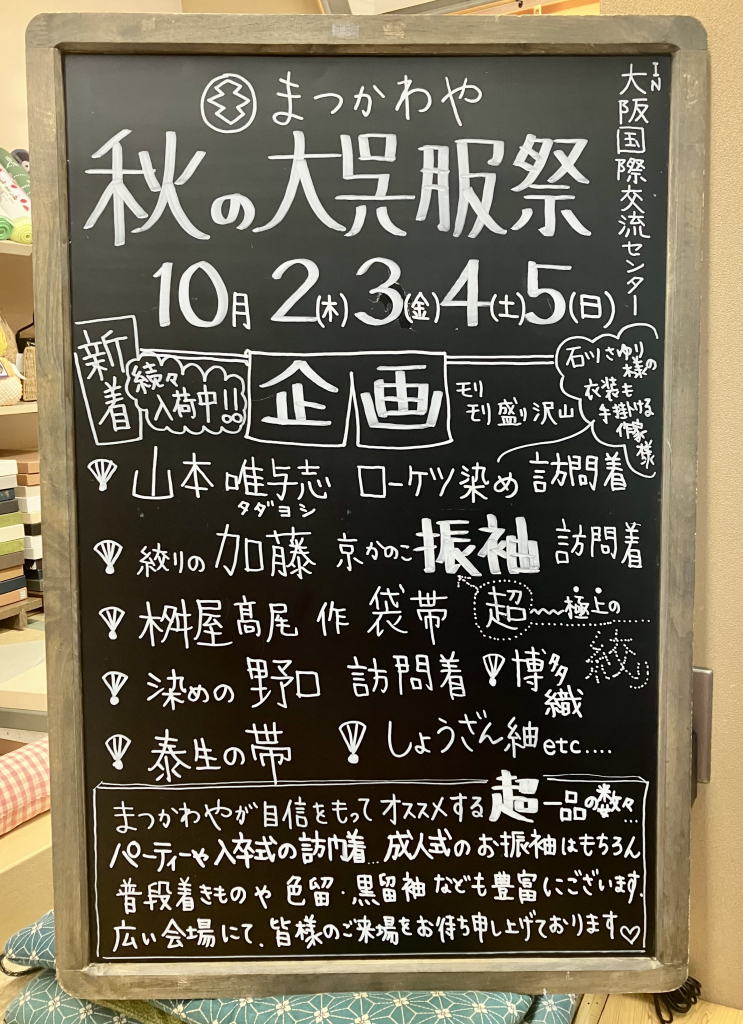 まつかわや
IN 大阪国際交流センター
秋の大呉服祭
10月2(木)3(金)4(土)5(日)
新着
続々
入荷中!!
企画
モリ
モリ盛り沢山
石川さゆり
様の
衣装も
手掛ける
作家
様
山本唯与志 ローケツ染め 訪問着
タダヨシ
絞りの加藤 京かのこ 振袖 訪問着
桝屋髙尾 作 袋帯
超〜極上の
絞り
染めの野口 訪問着
博多
織
泰生の帯
しょうざん紬 etc....
まつかわやが自信をもってオススメする超一品の数々...
パーティーや入卒式の訪問着...成人式のお振袖はもちろん
普段着きものや色留・黒留袖なども豊富にございます.
広い会場にて、皆様のご来場をお待ち申し上げております♡